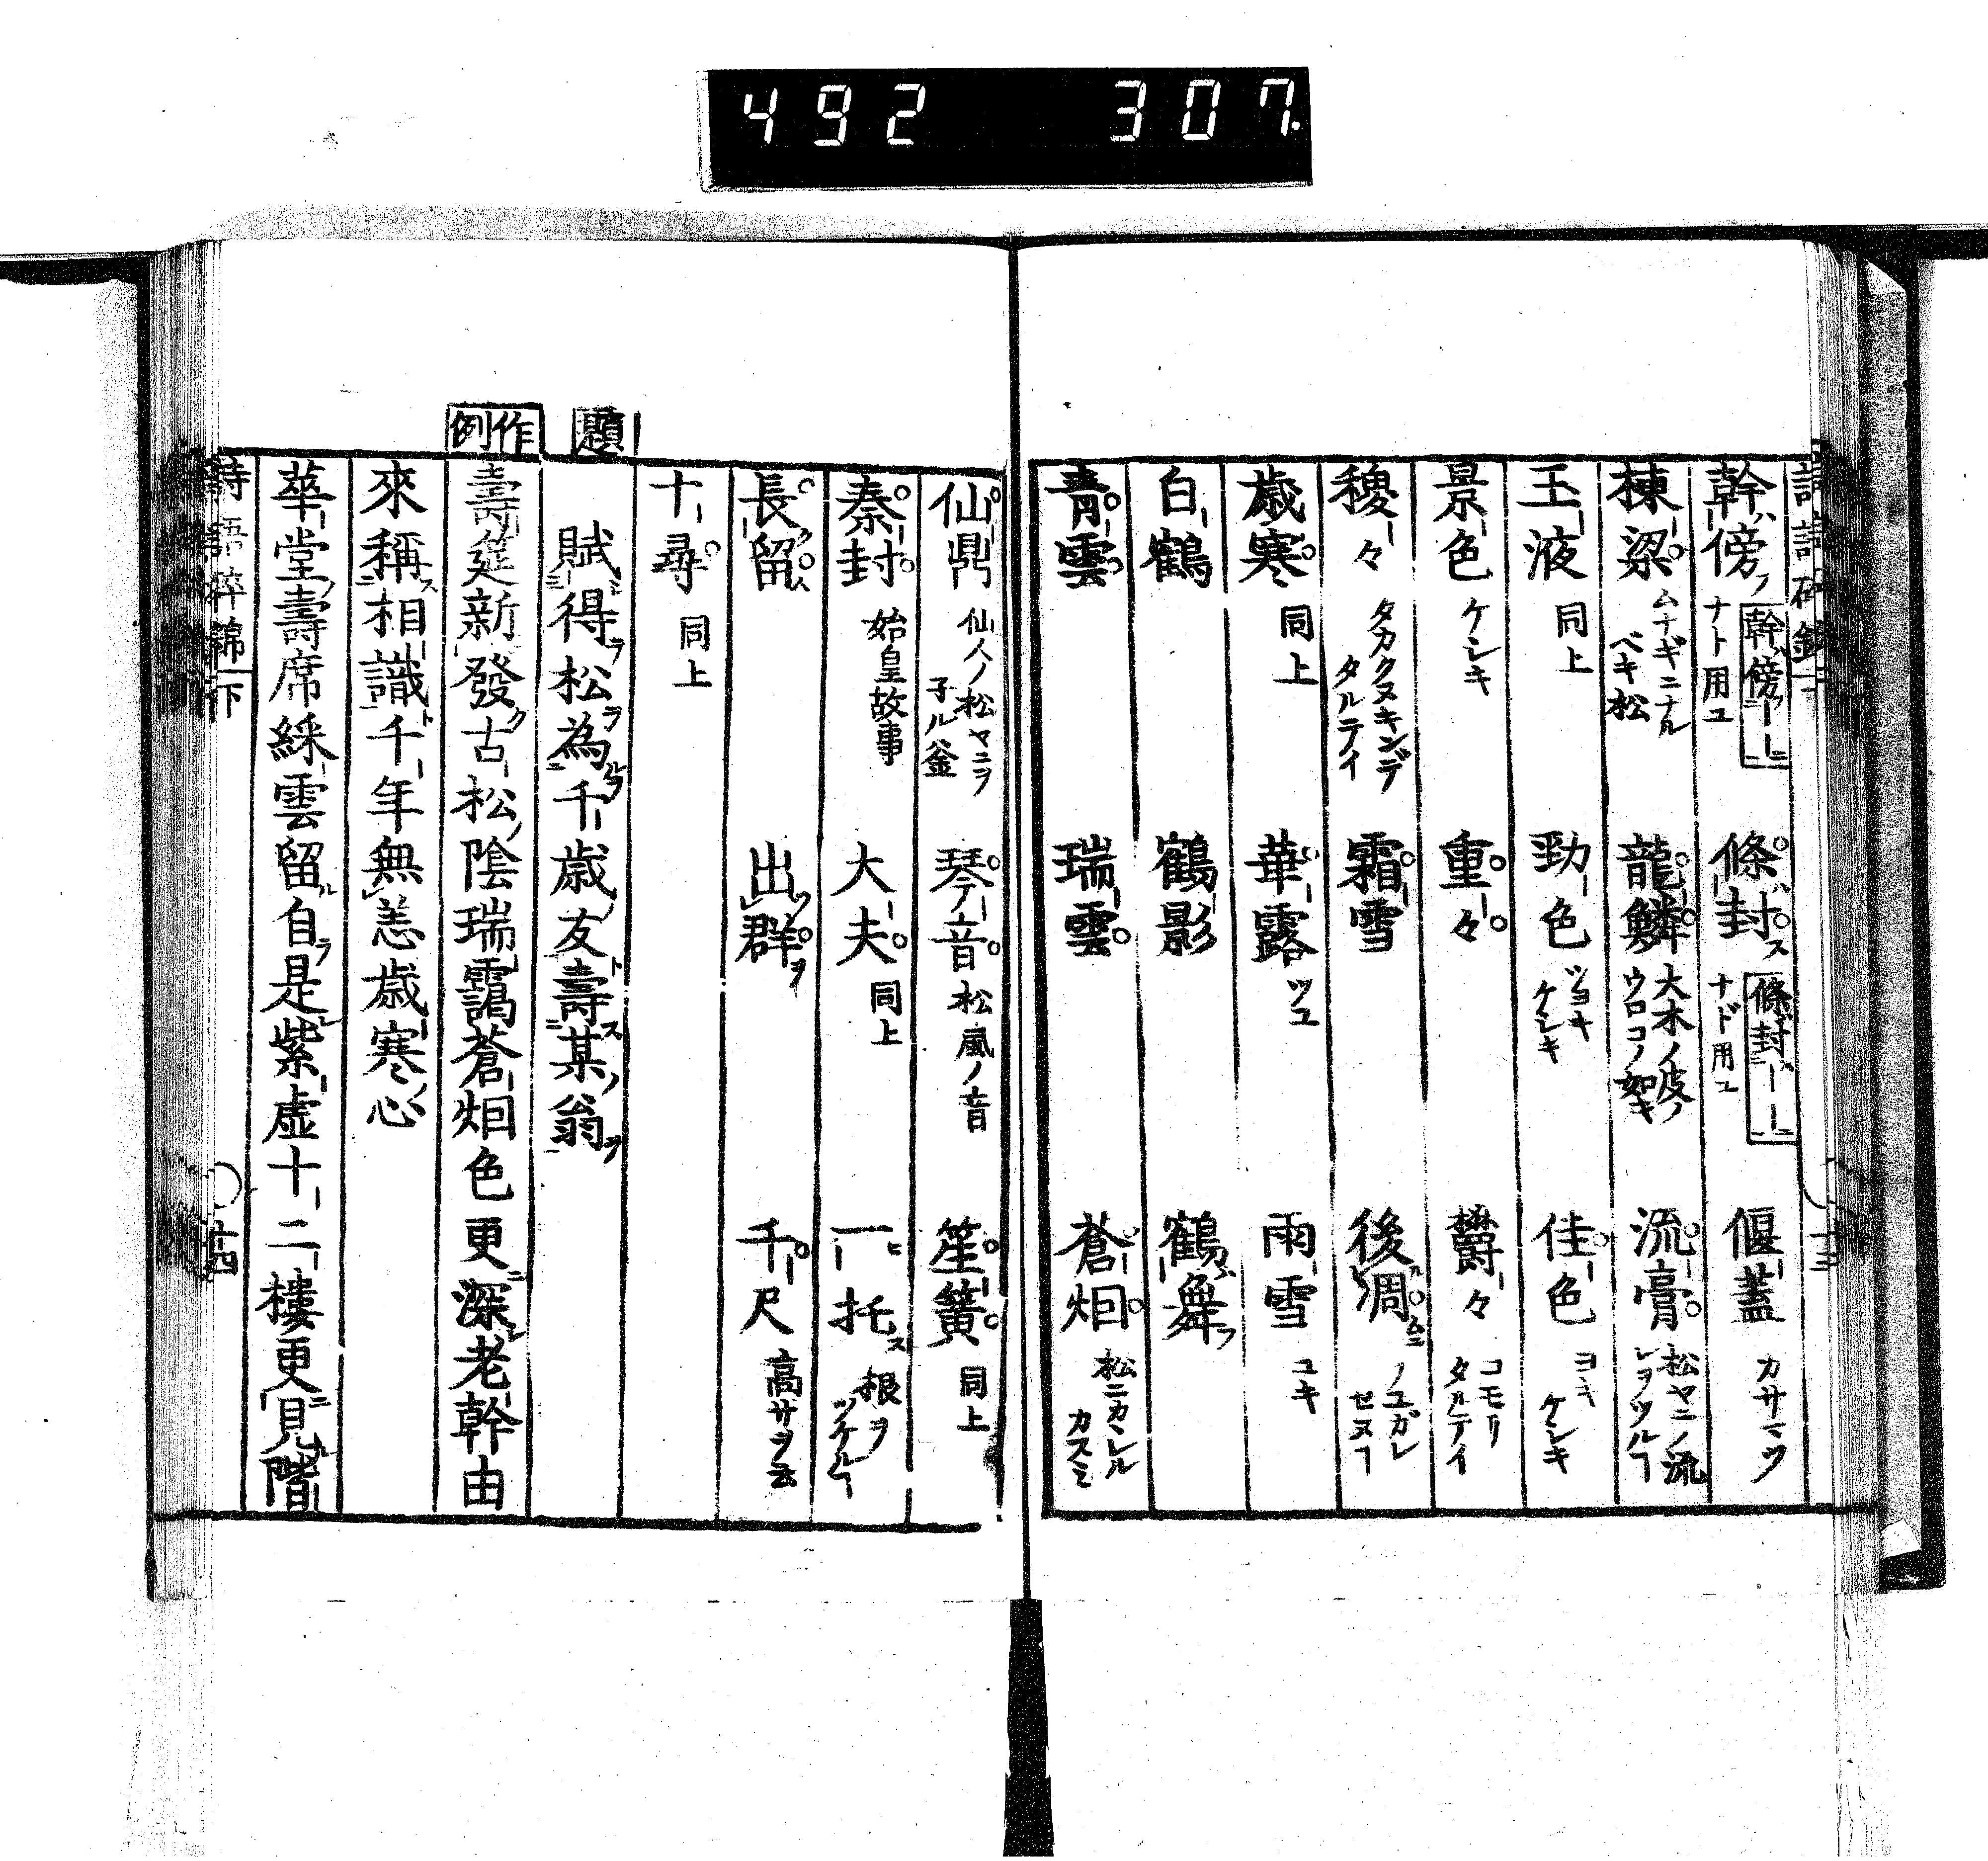 492 307.
幹傍フ 幹傍ーー ナト用ユ 條封ス 條封ーー ナド用ユ 偃蓋 カサニツ
棟梁 ムナギニナルベキ松 龍鱗 大木ノ皮ノウロコノ如キ 流膏 松ヤニノ流レヲツルヿ
玉液 同上 勁色 ツヨキケシキ 佳色 ヨキケシキ
景色 ケシキ 重々 欝々 コモリタルテイ
稷々 タカクヌキンデタルテイ 霜雪 後凋 ノユガレセヌヿ
歳寒 同上 華露 ツユ 雨雪 ユキ
白鶴 鶴影 鶴舞フ
青雲 瑞雲 蒼烟 松ニカヽレルカスミ
仙鼎 仙人ノ松ヤニヲ子ル釜 琴音 松風ノ音 笙簧 同上
秦封 始皇故事 大夫 同上 一托ス 根ヲツケルヿ
長留 出群ヲ 千尺 高サヲ云
十尋 同上
題
賦得松為千歳友壽某翁
作例
壽筵新發古松陰瑞靄蒼烟色更深老幹由
來稱相識千年無恙歳寒心
華堂壽席綵雲留自是紫虚十二樓更見階
詩語碎錦 下 十四